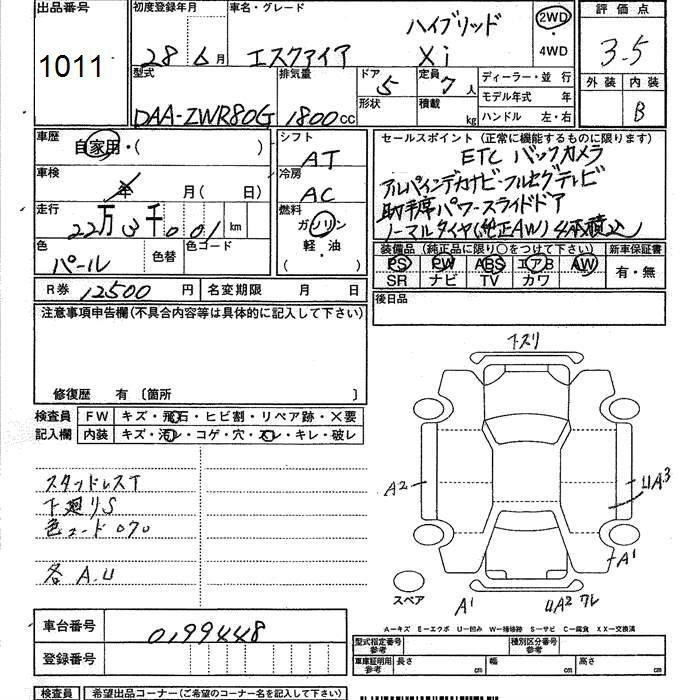 出品番号 初度登録年月 車名・グレード 評価点
1011 28 6月 エスクァイア ハイブリッド Xi 2WD・4WD 3.5
外装 内装
B
型式 排気量 ドア 定員 ディーラー・並行
DAA-ZWR80G 1800cc 5 7人 モデル年式 年
形状 積載 kg ハンドル 左・右
車歴 自家用・( ) シフト AT セールスポイント(正常に機能するものに限ります)
ETC バックカメラ
車検 年 月( 日) 冷房 AC アルパインデカナビ・フルセグテレビ
助手席パワースライドドア
走行 22万3千001km 燃料 ガソリン 軽・油 ( ) ノーマルタイヤ(純正AW)4本積込
色 パール 色替 色コード 装備品(純正品に限り○をつけて下さい) 新車保証書
PS PW ABS エアB AW 有・無
SR ナビ TV カワ
R券 12500円 名変期限 月 日 後日品
注意事項申告欄(不具合内容等は具体的に記入して下さい)
修復歴 有〔箇所 〕
検査員 FW キズ・飛石・ヒビ割・リペア跡・×要
記入欄 内装 キズ・汚レ・コゲ・穴・スレ・キレ・破レ
スタッドレスT
下廻りS
色コード070
各A.U
下スリ
A2
UA3
A1
スペア
A1 UA2 ワレ
A-キズ E-エクボ U-凹み W-補修跡 S-サビ C-腐食 XX-交換済
車台番号 0199448
登録番号
型式指定番号 参考 種別区分番号 参考
車庫証明用 参考 長さ cm 幅 cm 高さ cm
検査員 希望出品コーナー(ご希望のコーナー名を記入下さい)